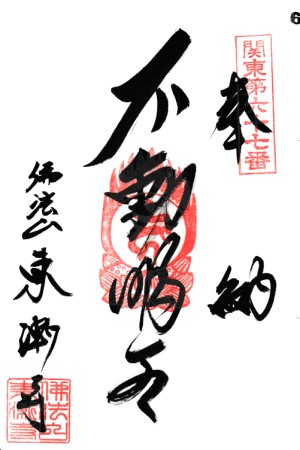 6
関東第六十七番
奉納
不動明王
佛法山東漸寺
佛法山
東漸寺